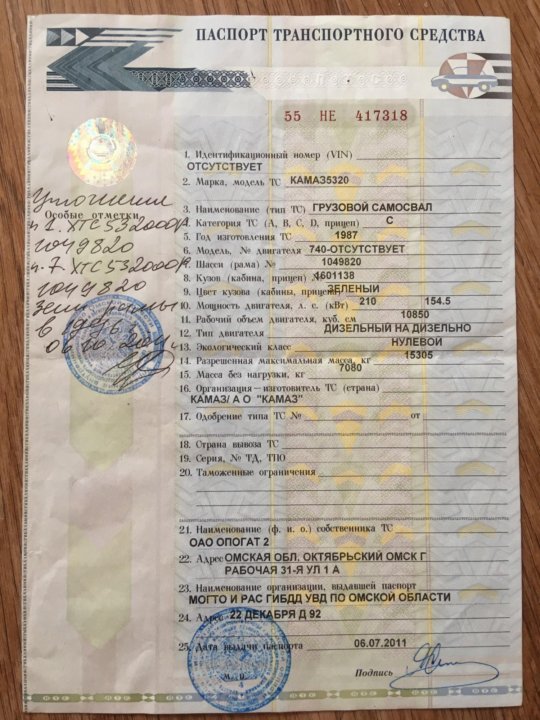 ПАСПОРТ ТРАНСПОРТНОГО СРЕДСТВА
55 НЕ 417318
1. Идентификационный номер (VIN)
ОТСУТСТВУЕТ
2. Марка, модель ТС КАМАЗ5320
3. Наименование (тип ТС) ГРУЗОВОЙ САМОСВАЛ
4. Категория ТС (A, B, C, D, прицеп) C
5. Год изготовления ТС 1987
6. Модель, № двигателя 740-ОТСУТСТВУЕТ
7. Шасси (рама) № 1049820
8. Кузов (кабина, прицеп) 1601138
9. Цвет кузова (кабины, прицепа) ЗЕЛЕНЫЙ
10. Мощность двигателя, л. с. (кВт) 210 154.5
11. Рабочий объем двигателя, куб. см 10850
12. Тип двигателя ДИЗЕЛЬНЫЙ НА ДИЗЕЛЬНО
13. Экологический класс НУЛЕВОЙ
14. Разрешенная максимальная масса, кг 15305
15. Масса без нагрузки, кг 7080
16. Организация—изготовитель ТС (страна)
КАМАЗ/ А О "КАМАЗ"
17. Одобрение типа ТС № от
18. Страна вывоза ТС
19. Серия, № ТД, ТПО
20. Таможенные ограничения
21. Наименование (ф. и. о.) собственника ТС
ОАО ОПОГАТ 2
22. Адрес ОМСКАЯ ОБЛ. ОКТЯБРЬСКИЙ ОМСК Г
РАБОЧАЯ 31-Я УЛ 1 А
23. Наименование организации, выдавшей паспорт
МОГТО И РАС ГИБДД УВД ПО ОМСКОЙ ОБЛАСТИ
24. Адрес 22 ДЕКАБРЯ Д 92
25. Дата выдачи паспорта 06.07.2011
М. П.
Подпись
Особые отметки
п 1. ХТС532000Р
1049820
п. 7 ХТС532000Р
1049820